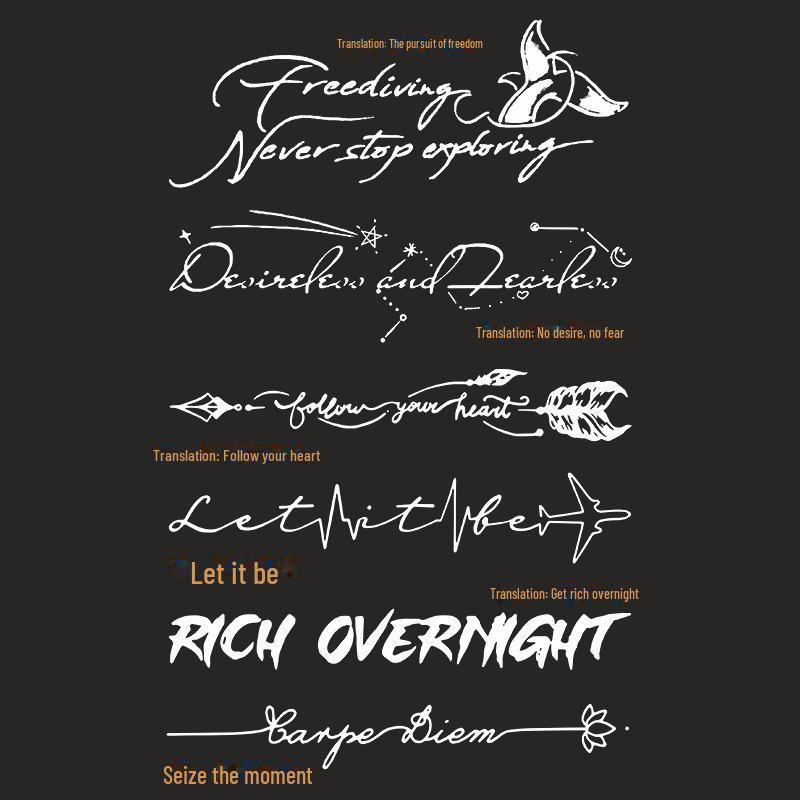 Translation: The pursuit of freedom
Freediving
Never stop exploring
Desireless and Fearless
Translation: No desire, no fear
follow your heart
Translation: Follow your heart
Let it be
Let it be
Translation: Get rich overnight
RICH OVERNIGHT
Carpe Diem
Seize the moment